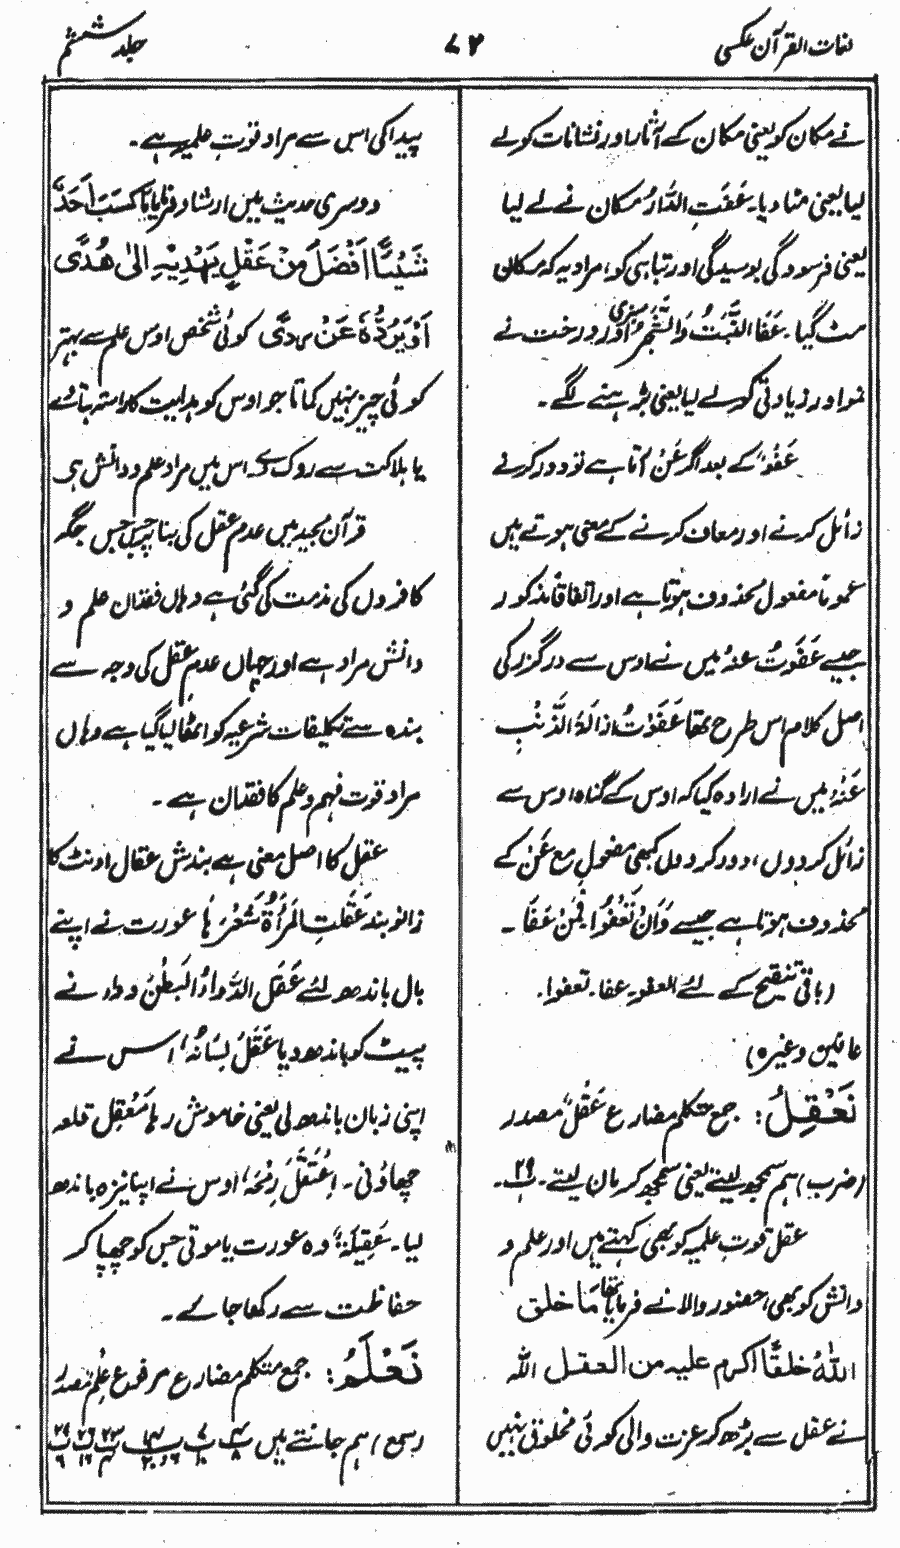 لغات القرآن عکسی
۷۲
جلد ششم
نے مکان کو یعنی مکان کے آثار اور نشانات کو لے
لیا یعنی مٹا دیا۔ عَفَتِ الدَّارُ مکان نے لے لیا
یعنی فرسودگی بوسیدگی اور تباہی کو، مراد یہ کہ مکان
مٹ گیا۔ عَفَا النَّبْتُ وَالشَّجَرُ سبزی اور درخت نے
نمو اور زیادتی کو لے لیا یعنی بڑہنے لگے۔
عَفْوٌ کے بعد اگر عَنْ آتا ہے تو دور کرنے
زائل کرنے اور معاف کرنے کے معنی ہوتے ہیں
عموماً مفعول محذوف ہوتا ہے اور اتفاقاً مذکور
جیسے عَفَوْتُ عنہُ میں نے اوس سے درگزر کی
اصل کلام اس طرح تھا عَفَوْتُ ازالۃ الذَّنْبِ
عَنْہُ میں نے ارادہ کیا کہ اوس کے گناہ اوس سے
زائل کردوں، دور کردوں کبھی مفعول مع عَنْ کے
محذوف ہوتا ہے جیسے وَاَنْ تَعْفُوْا فَمَنْ عَفَا۔
(باقی تنقیح کے لئے العفو۔ عفا۔ تعفوا۔
عافین وغیرہ)
نَعْقِلُ: جمع متکلم مضارع عَقْلٌ مصدر
(ضرب) ہم سمجھ لیتے یعنی سمجھ کر مان لیتے۔ ۲۹۔
عقل قوتِ علمیہ کو بھی کہتے ہیں اور علم و
دانش کو بھی، حضور والا نے فرمایا تھا مَا خلق
اللّٰہُ خلقًا اکرم علیہ من العقل اللہ
نے عقل سے بڑھ کر عزت والی کوئی مخلوق نہیں
پیدا کی اس سے مراد قوتِ علمیہ ہے۔
دوسری حدیث میں ارشاد فرمایا مَا کَسَبَ اَحَدٌ
شَیْئًا اَفْضَلَ مِنْ عَقْلٍ یَہْدِیْہِ الیٰ ھُدًی
اَوْ یَرُدُّہٗ عَنْ ردًی کوئی شخص اوس علم سے بہتر
کوئی چیز نہیں کماتا جو اوس کو ہدایت کا راستہ بتائے
یا ہلاکت سے روک دے۔ اس میں مراد علم و دانش ہی
قرآن مجید میں عدم عقل کی بنا پر جس جگہ
کافروں کی مذمت کی گئی ہے وہاں فقدان علم و
دانش مراد ہے اور جہاں عدم عقل کی وجہ سے
بندہ سے تکلیفات شرعیہ کو اٹھا لیا گیا ہے وہاں
مراد قوت فہم و علم کا فقدان ہے۔
عقل کا اصل معنی ہے بندش عقال اونٹ کا
زانو بند عَقَلَتِ الْمَرْأَۃُ شَعْرَہَا عورت نے اپنے
بال باندھ لئے عَقَلَ الدَّوَاءُ الْبَطْنَ دوا نے
پیٹ کو باندھ دیا عَقَلَ لِسَانُہ، اس نے
اپنی زبان باندھ لی یعنی خاموش رہا مَعْقِل قلعہ
چھاؤنی۔ اِعْتَقَلَ رِمْحَہ، اوس نے اپنا نیزہ باندھ
لیا۔ عَقِیْلَۃٌ وہ عورت یا موتی جس کو چھپا کر
حفاظت سے رکھا جائے۔
نَعْلَمُ: جمع متکلم مضارع مرفوع عِلْمٌ مصدر
(سمع) ہم جانتے ہیں